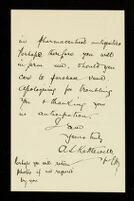 in pharmaceutical antiquities
Perhaps therefore you will
inform me, should you
care to purchase same.
Apologising for troubling
you & thanking you
in anticipation.
I am
Yours truly,
A.
Perhaps you will return
photo if not required
by you